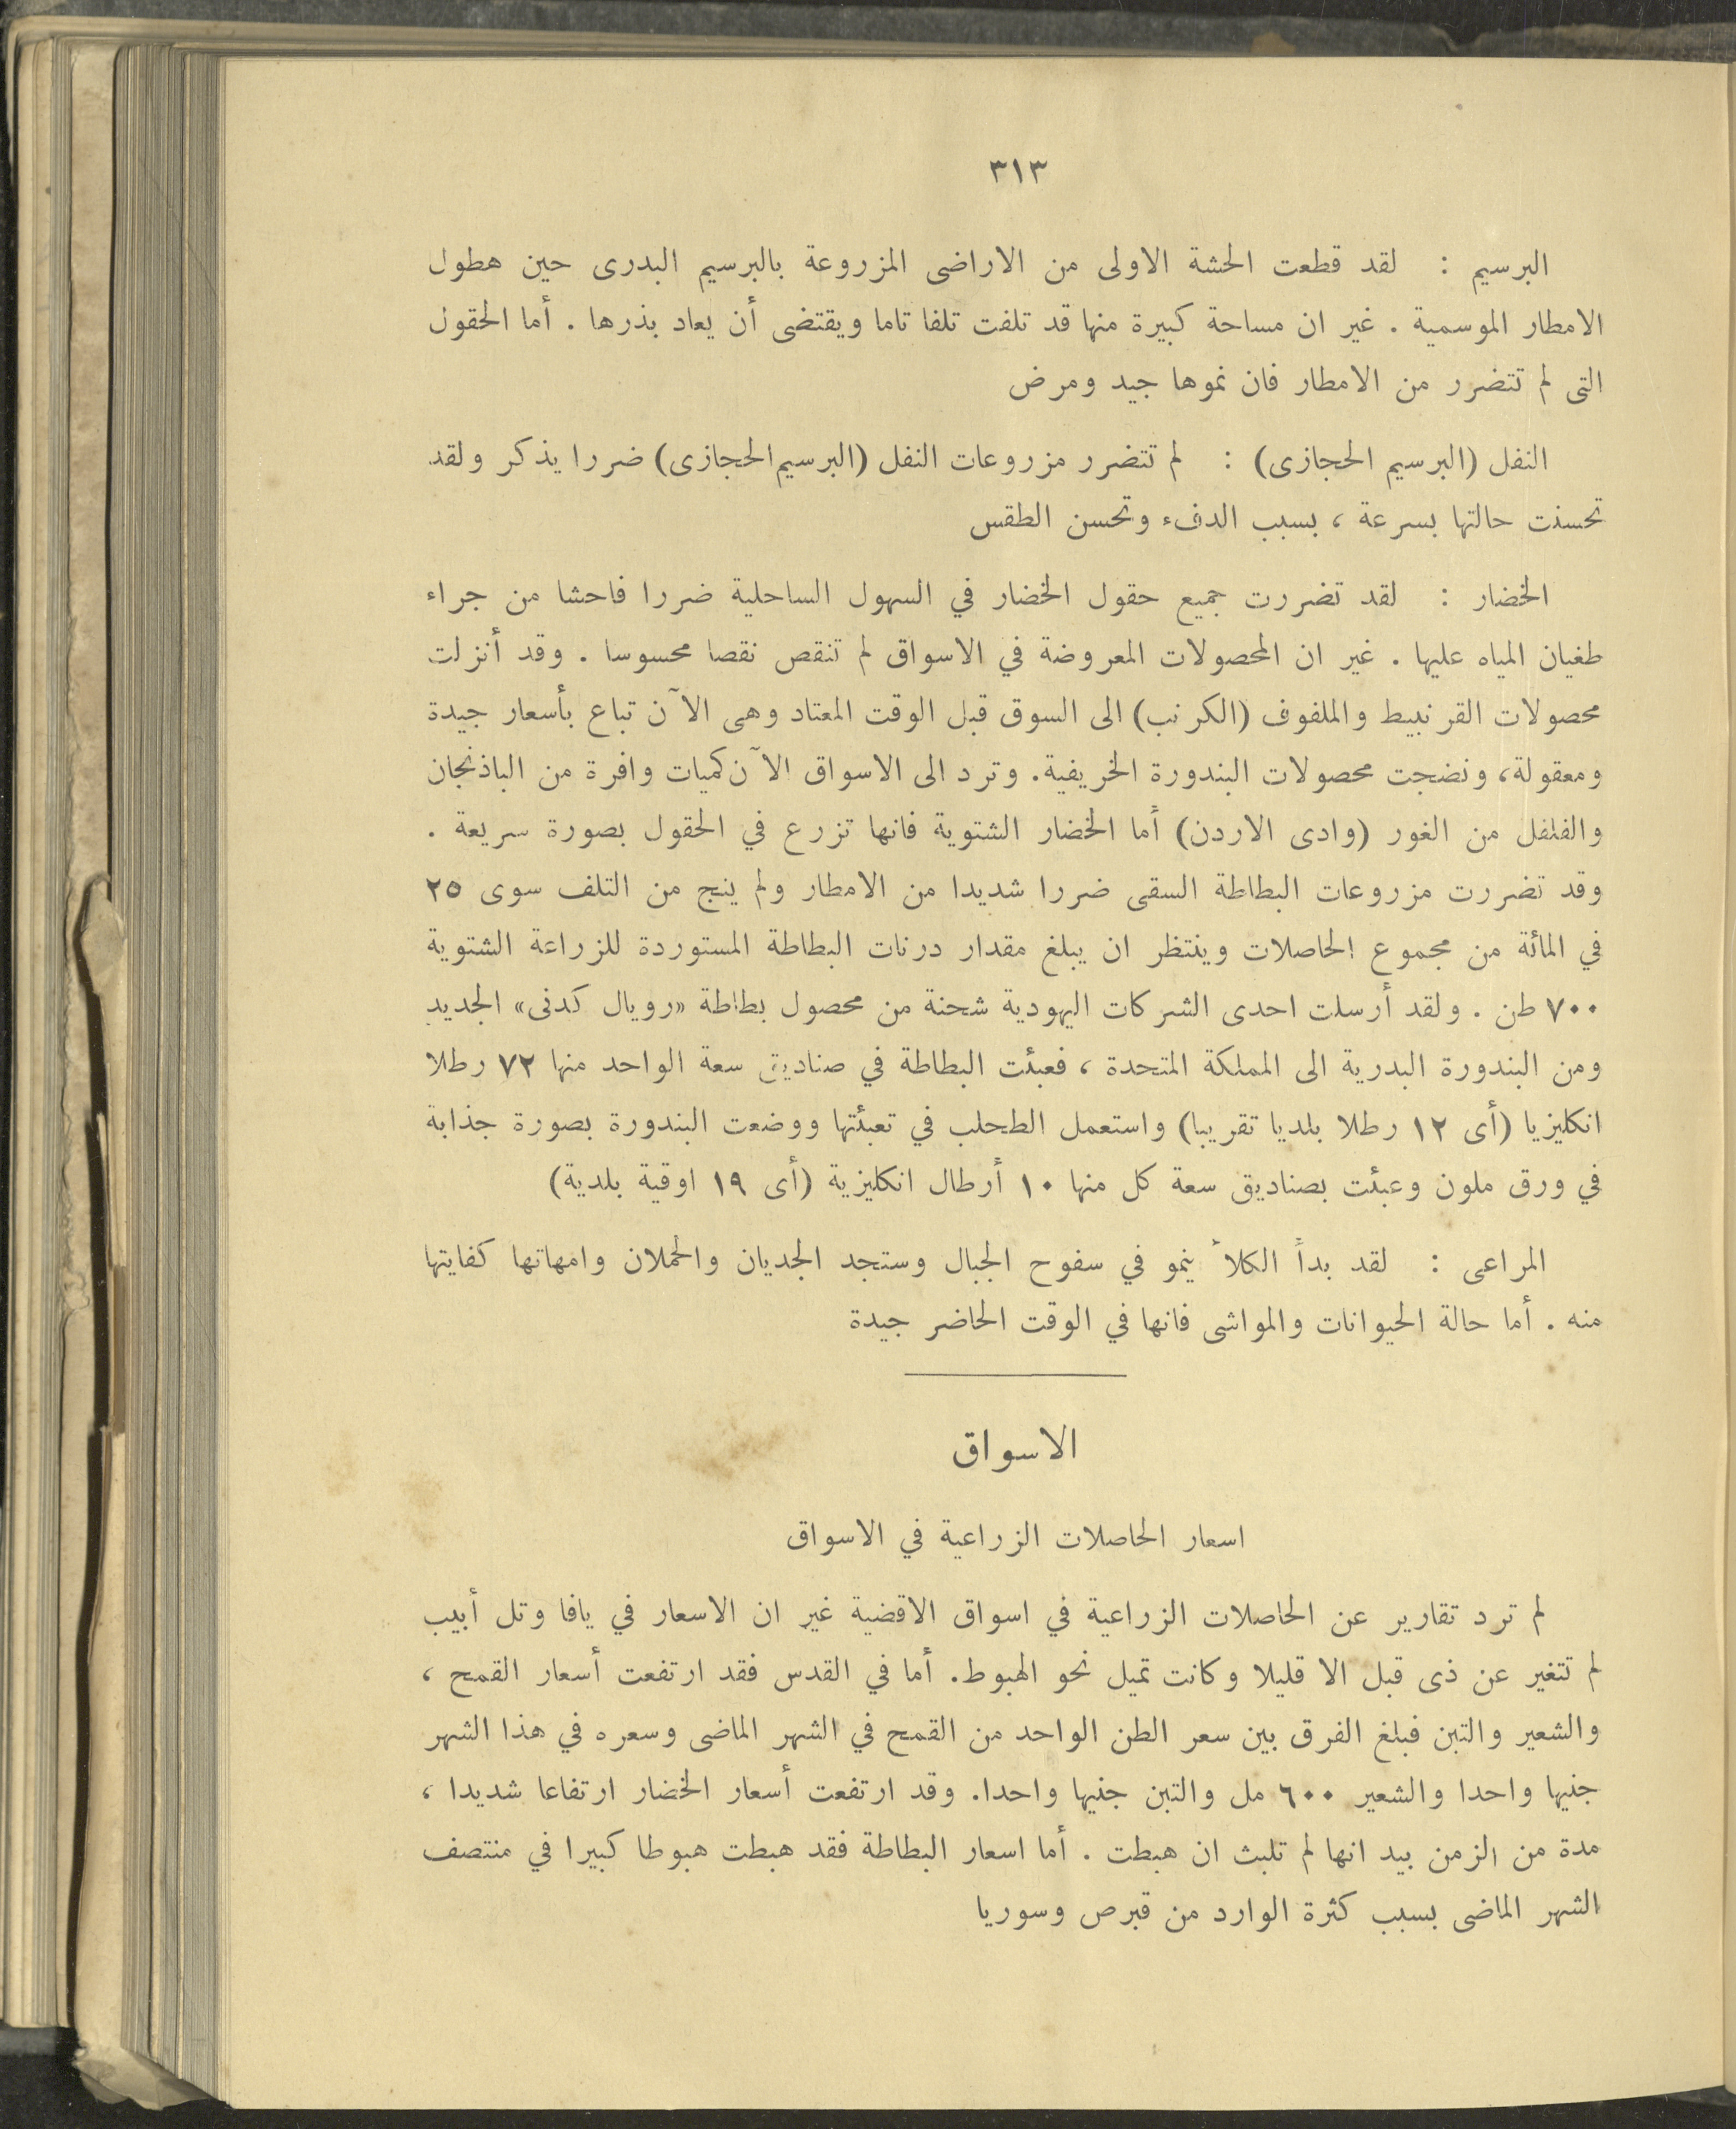 ٣١٣
البرسيم : لقد قطعت الحشة الاولى من الاراضى المزروعة بالبرسيم البدرى حين هطول
الامطار الموسمية . غير ان مساحة كبيرة منها قد تلفت تلفا تاما ويقتضى أن يعاد بذرها . أما الحقول
التى لم تتضرر من الامطار فان نموها جيد ومرض
النفل (البرسيم الحجازى) : لم تتضرر مزروعات النفل (البرسيم الحجازى) ضررا يذكر ولقد
تحسنت حالتها بسرعة ، بسبب الدفء وتحسن الطقس
الخضار : لقد تضررت جميع حقول الخضار في السهول الساحلية ضررا فاحشا من جراء
طغيان المياه عليها . غير ان المحصولات المعروضة في الاسواق لم تنقص نقصا محسوسا . وقد أنزلت
محصولات القرنبيط والملفوف (الكرنب) الى السوق قبل الوقت المعتاد وهى الآن تباع بأسعار جيدة
ومعقولة، ونضجت محصولات البندورة الخريفية. وترد الى الاسواق الآن كميات وافرة من الباذنجان
والفلفل من الغور (وادى الاردن) أما الخضار الشتوية فانها تزرع في الحقول بصورة سريعة .
وقد تضررت مزروعات البطاطة السقى ضررا شديدا من الامطار ولم ينج من التلف سوى ٢٥
في المائة من مجموع الحاصلات وينتظر ان يبلغ مقدار درنات البطاطة المستوردة للزراعة الشتوية
٧٠٠ طن . ولقد أرسلت احدى الشركات اليهودية شحنة من محصول بطاطة «رويال كدنى» الجديد
ومن البندورة البدرية الى المملكة المتحدة ، فعبئت البطاطة في صناديق سعة الواحد منها ٧٢ رطلا
انكليزيا (أى ١٢ رطلا بلديا تقريبا) واستعمل الطحلب في تعبئتها ووضعت البندورة بصورة جذابة
في ورق ملون وعبئت بصناديق سعة كل منها ١٠ أرطال انكليزية (أى ١٩ اوقية بلدية)
المراعى : لقد بدأ الكلأ ينمو في سفوح الجبال وستجد الجديان والحملان وامهاتها كفايتها
منه . أما حالة الحيوانات والمواشى فانها في الوقت الحاضر جيدة
الاسواق
اسعار الحاصلات الزراعية في الاسواق
لم ترد تقارير عن الحاصلات الزراعية في اسواق الاقضية غير ان الاسعار في يافا وتل أبيب
لم تتغير عن ذى قبل الا قليلا وكانت تميل نحو الهبوط. أما في القدس فقد ارتفعت أسعار القمح ،
والشعير والتبن فبلغ الفرق بين سعر الطن الواحد من القمح في الشهر الماضى وسعره في هذا الشهر
جنيها واحدا والشعير ٦٠٠ مل والتبن جنيها واحدا. وقد ارتفعت أسعار الخضار ارتفاعا شديدا ،
مدة من الزمن بيد انها لم تلبث ان هبطت . أما اسعار البطاطة فقد هبطت هبوطا كبيرا في منتصف
الشهر الماضى بسبب كثرة الوارد من قبرص وسوريا